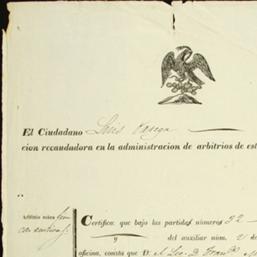 El Ciudadano Luis Varega
cion recaudadora en la administracion de arbitrios de est
Arbitrio sobre
Certifico: que bajo las partidas números 32
y del auxiliar núm. 2 d
oficina, consta que D. el Sr. D. Franco